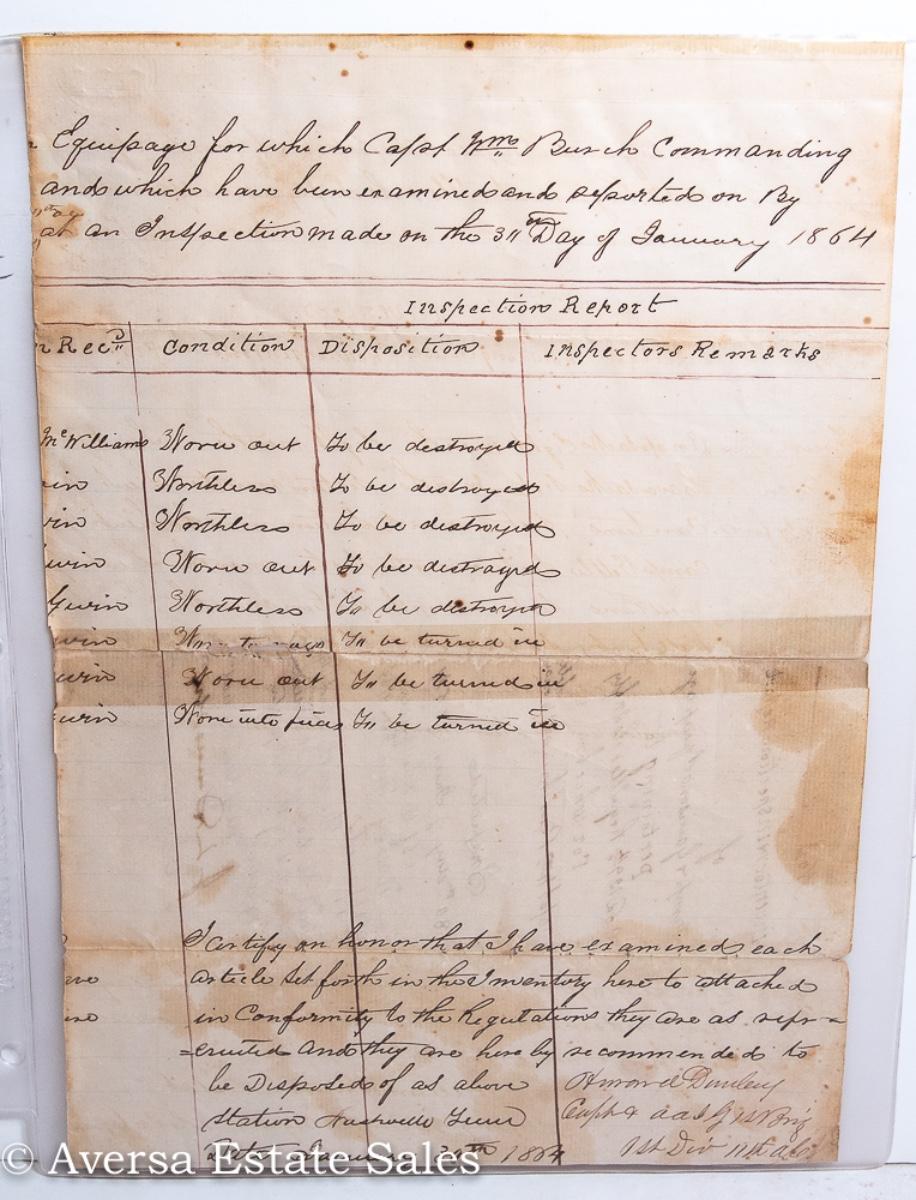 Equipage for which Capt Wm Burch Commanding
and which have been examined and reported on By
at an Inspection made on the 3" Day of January 1864
Inspection Report
Recd Condition Disposition Inspectors Remarks
McWilliams Worn out To be destroyed
Worthless To be destroyed
Worthless To be destroyed
Worn out To be destroyed
Worthless To be destroyed
To be turned in
Worn out To be turned in
Worn into pices To be turned in
I certify on honor that I have examined each
article Set forth in the Inventory here to attached
in Conformity to the Regulations they are as repr=
=erented and they are here by recommended to
be Disposed of as above
Station Nashville Tenn
January 30th 1864
Howard
Capt & a a I G 1st Brig
1st Div 11th
© Aversa Estate Sales